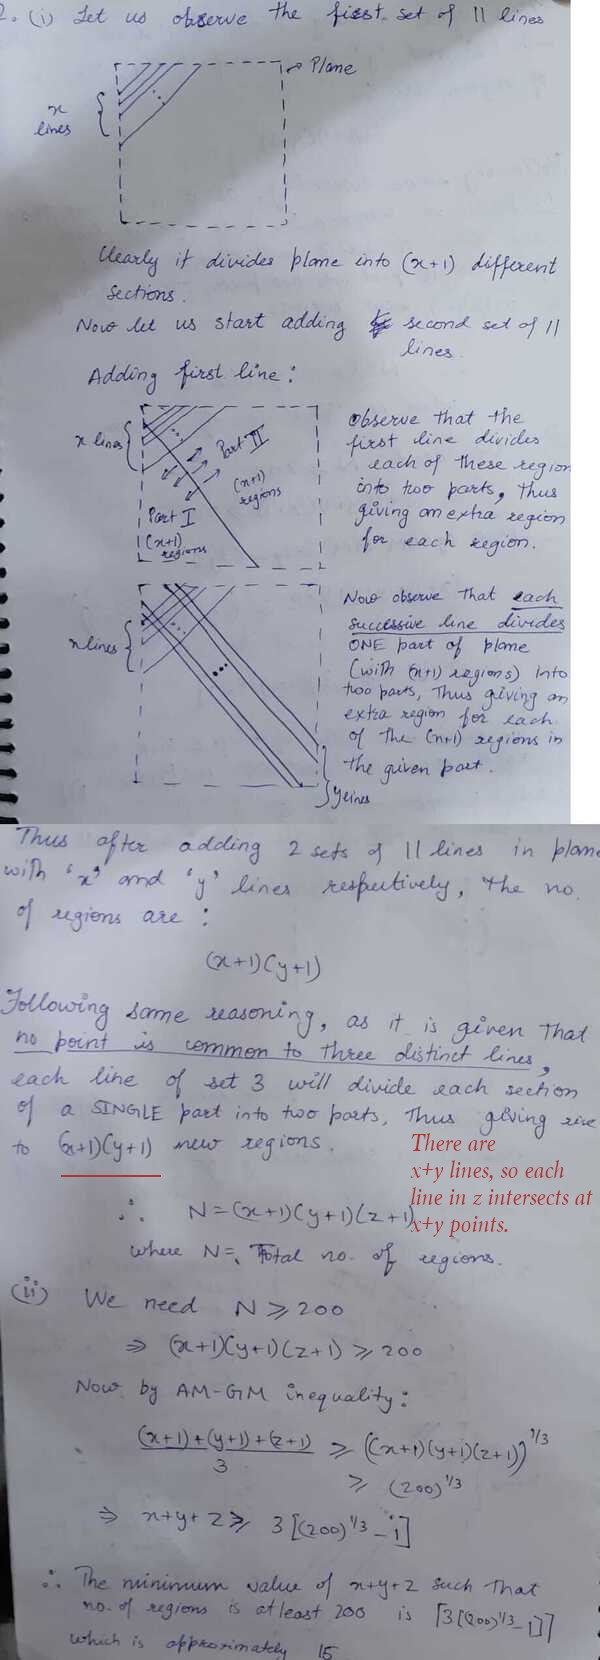 2. (i) Let us observe the first set of 11 lines
Plane
x
lines
Clearly it divides plane into (x+1) different
sections.
Now let us start adding second set of 11
lines.
Adding first line:
x lines
Part II
(x+1)
regions
Part I
(x+1)
regions
Observe that the
first line divides
each of these region
into two parts, Thus
giving an extra region
for each region.
x lines
y lines
Now observe that each
successive line divides
ONE part of plane
(with (x+1) regions) into
two parts, Thus giving an
extra region for each
of the (x+1) regions in
the given part.
Thus after adding 2 sets of 11 lines in plane
with 'x' and 'y' lines respectively, the no.
of regions are :
(x+1)(y+1)
Following same reasoning, as it is given that
no point is common to three distinct lines,
each line of set 3 will divide each section
of a SINGLE part into two parts, Thus giving rise
to (x+1)(y+1) new regions.
There are
x+y lines, so each
line in z intersects at
x+y points.
∴ N = (x+1)(y+1)(z+1)
where N = Total no. of regions.
(ii) We need N ⩾ 200
⇒ (x+1)(y+1)(z+1) ⩾ 200
Now by AM-GM inequality:
(x+1)+(y+1)+(z+1) / 3 ⩾ ((x+1)(y+1)(z+1))^1/3
⩾ (200)^1/3
⇒ x+y+z ⩾ 3[(200)^1/3 - 1]
∴ The minimum value of x+y+z such that
no. of regions is atleast 200 is ⌈3[(200)^1/3 - 1]⌉
which is approximately 15